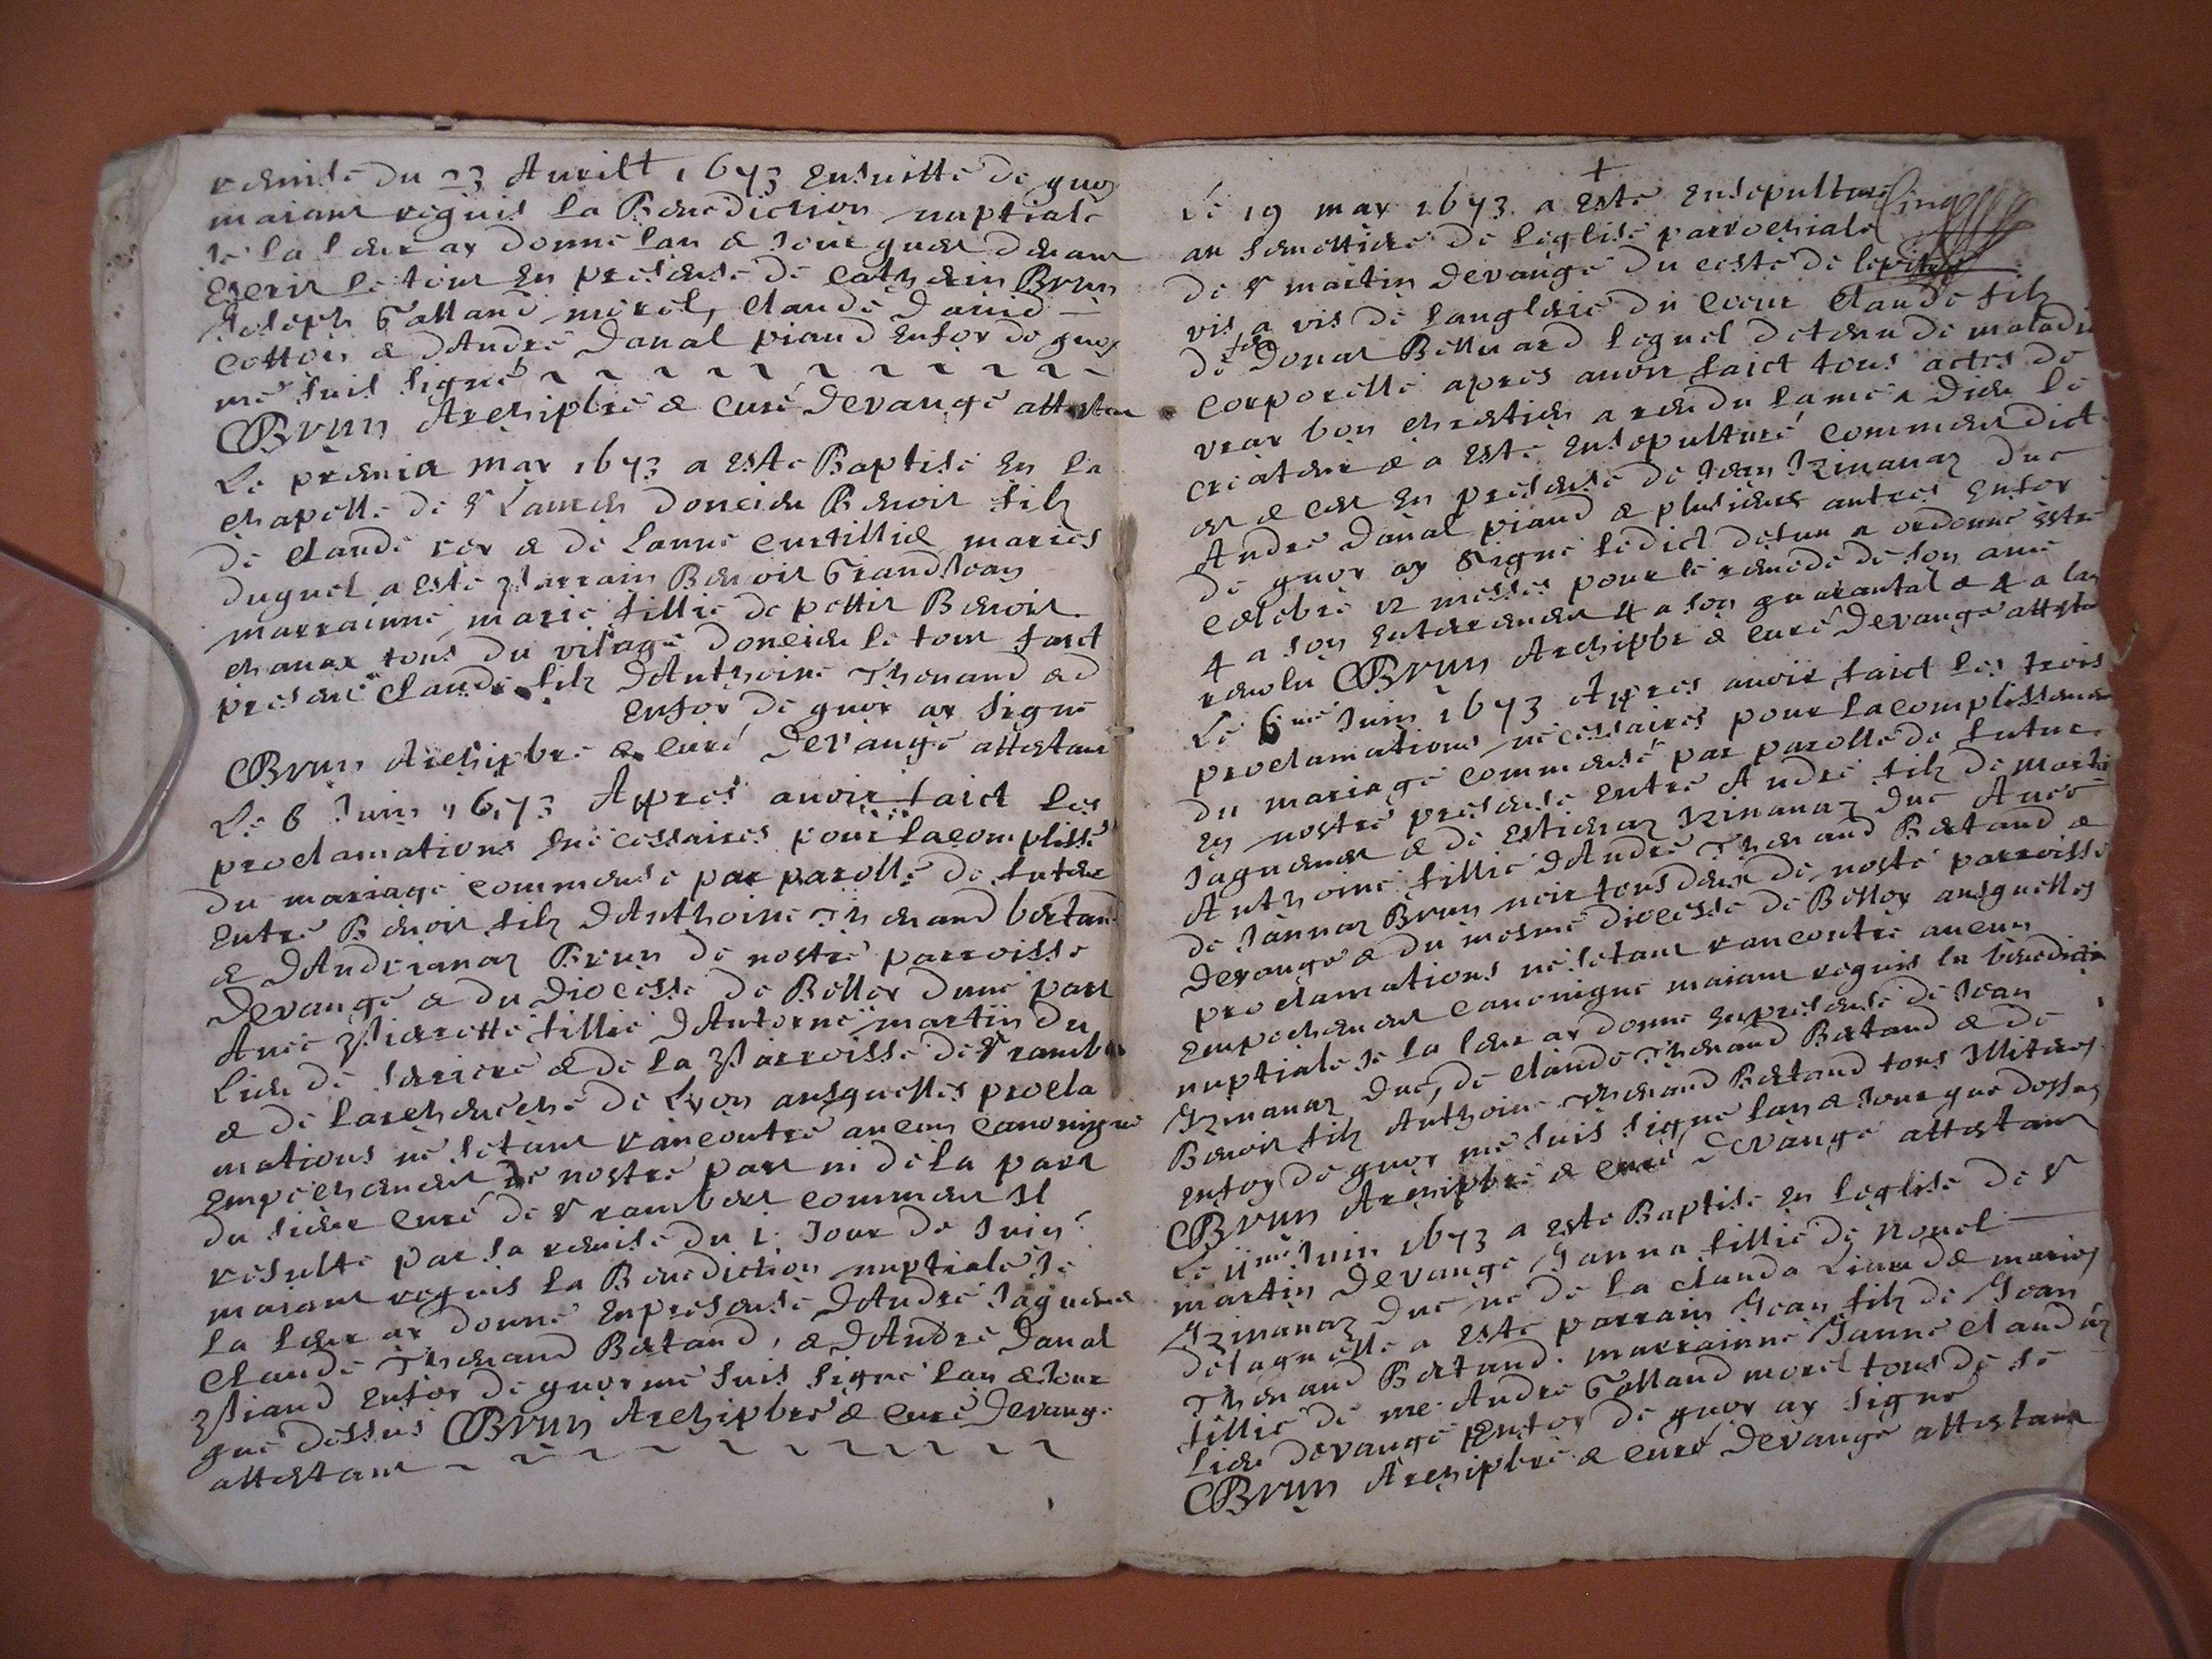 remise du 23 Aurilt 1673 ensuitte de quoy
maiant requis la Benediction nuptiale
Je la leur ay donné lan & Jour quen deuant
Escrit le tout en presense de Catherin Brun
Joseph Galland morel, Claude Dauid
cottois & dAndré Danal piand enfoy de quoy
me suis signé
Brun Archipbre & curé Devange attestant
Le premier may 1673 a este Baptisé en la
chapelle de St Laurens doncieu Benoit filz
de claude rey & de Lanne curtillie mariés
duquel a esté Parrain Benoit Grand Jean
marrainne marie fillie de pettit Benoit
chanax tous du vilage doncieu le tout faict
presant Claude filz dAnthoine Thenand &
enfoy de quoy ay signé
Brun Archipbre & curé Devange attestant
Le 6 Juin 1673 Appres auoir faict les
proclamations necessaires pour lacomplisse
du mariage commensé par parolle de futur
Entre Benoit filz dAnthoine Thenand bertand
& dAndrianaz Brun de nostre parroisse
Devange & du Diocesse de Belley dune part
Auec Pierrette fillie dAntoine martin du
Lieu de serriere & de la Parroisse de St rambe
& de Larcheueché de Lyon ausquelles procla
mations ne setant rancontré aucun canonique
empechemen de nostre part ni de la part
du sieur curé de St rambert commen Il
resulte par sa remise du 1. Jour de Juin
maiant requis la Benediction nuptiale Je
la leur ay donné enpresense dAndré Jaguemet
Claude Thenand Bertand, & dAndré Danal
Piand enfoy de quoy me suis signé lan & Jour
que dessus Brun Archipbre & curé Devange
attestant
+
Le 19 may 1673 a esté ensepulturé
au semettiere de leglise parrochiale
de St martin Devange du costé de
vis a vis de langlerie du coeur Claude filz
de feu Donat Belluard lequel detenu de maladie
corporelle apres auoir faict tous actes de
vray bon chrestien a rendu lame a Dieu le
createur & a esté ensepulturé commen dict
en presense de Jean Izinanaz duc
André Danal piand & plusieurs autres enfoy
de quoy ay signé ledict defun a ordonné estre
celebré 12 messes pour le remede de son ame
4 a son enterremen 4 a son quarantal & 4 a lan
reuolu Brun Archipbr & curé Devange attesta
Le 6me Juin 1673 Appres auoir faict les trois
proclamations necessaires pour lacomplissemen
du mariage commensé par parolle de futur
en nostre presense entre André filz de marti
Jaguemet & de Estienaz Izinanaz duc Auec
Anthoine fillie dAndré Thenand Bertand &
de Jannaz Brun noir tous deux de nostre parroisse
Devange & du mesme diocesse de Belley ausquelles
proclamations ne setant rancontré aucun
empechemen canonique maiant requis la benedictio
nuptiale Je la leur ay donné enpresense de Jean
Izinanaz duc, de Claude Thenand Bertand & de
Benoit filz Anthoine Thenand Bertand tous Illiteres
enfoy de quoy me suis signé lan & Jour que dessus
Brun Archipbre & curé Devange attestant
Le 11me Juin 1673 a esté Baptisé en leglise de St
martin Devange Janna fillie de Nouel
Izinanaz duc ne de la clauda Liaud & mariés
delaquelle a esté parrain Jean filz de Jean
Thenand Bertand. marrainne Janne claudaz
fillie de me André Galland morel tous de se
Lieu Devange Enfoy de quoy ay signé
Brun Archipbre & curé Devange attestant